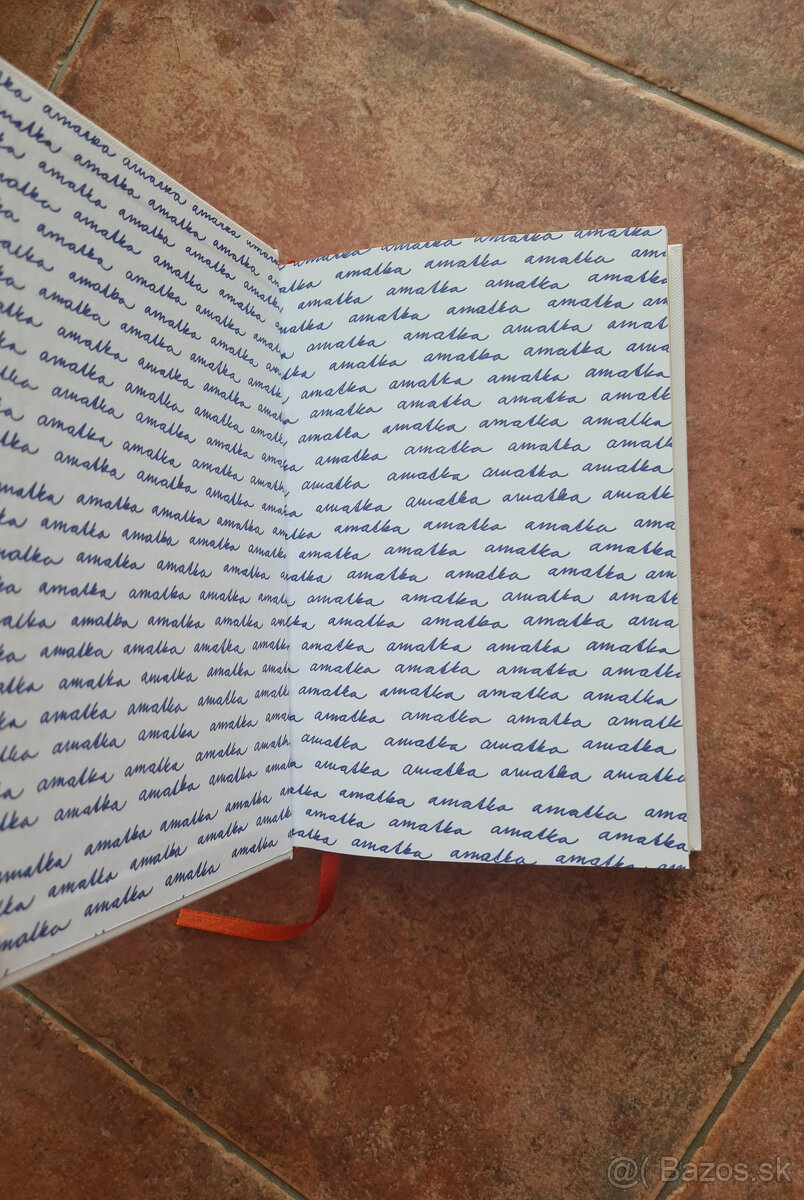 lka amalka amalka amalka amalka
malka amalka amalka amalka am
ka amalka amalka amalka amalka
malka amalka amalka amalka
ka amalka amalka amalka amalka
amalka amalka amalka am
ka amalka amalka amalka amalk
alka amalka amalka amalka
ka amalka amalka amalka amalk
lka amalka amalka amalka
ka amalka amalka amalka amal
lka amalka amalka amalka ama
amalka amalka amalka amalka amal
ka amalka amalka amalka amalk
malka amalka amalka amalka a
ka amalka amalka amalka amalk
malka amalka amalka amalka am
ka amalka amalka amalka amalk
alka amalka amalka amalka amal
ka amalka amalka amalka amal
lka amalka amalka amalka amal
a amalka amalka amalka amalk
lka amalka amalka amalka amal
amalka amalka amalka amalka amal
ka amalka amalka amalka amal
malka amalka amalka amalka
amalka amalka amalka amalka
alka amalka amalka amalka am
amalka amalka amalka amalka
malka amalka amalka amalka am
amalka amalka amalka amal
lka amalka amalka amalka ama
amalka amalka amalka amalka
amalka amalka amalka amalk
amalka amalka amalka amalka
a amalka amalka amalka amalk
amalka amalka amalka amalka
a amalka amalka amalka amalk
lka amalka amalka amalka ama
amalka amalka amalka amalka
malka amalka amalka amalka am
amalka amalka amalka amalk
lka amalka amalka amalka ama
amalka amalka amalka amalka
amalka amalka amalka amalka
amalka amalka amalka amalka
a amalka amalka amalka amalk
amalka amalka amalka amalka
amalka amalka amalka amalka
alka amalka amalka amalka ama
amalka amalka amalka amalka
malka amalka amalka amalka am
@( Bazos.sk